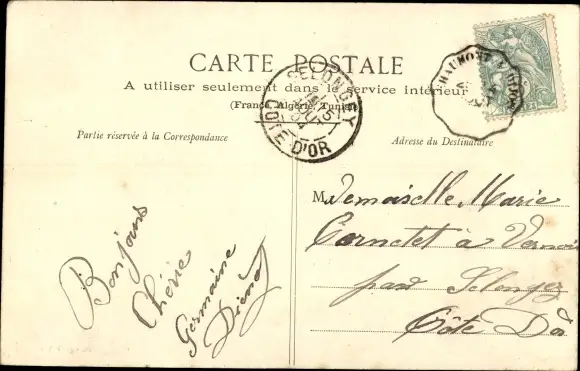 CARTE POSTALE
A utiliser seulement dans le service intérieur
(France, Algérie, Tunisie)
Partie réservée à la Correspondance
Adresse du Destinataire
SELONGEY
COTE-D'OR
CHAUMONT
Bonjour
Chérie
Germaine
Mademoiselle Marie
Cornetet à
par Selongey
Côte D'or